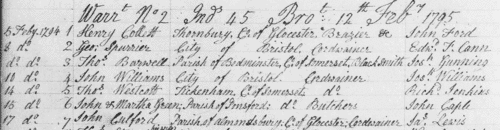 Warrt No 2 Ind 45 Brot 12th Feby 1795
5 Feby 1794 1 Henry Collett Thornbury, Co of Glocester Brazier &c John Ford
8 do 2 Geo: Spurrier City of Bristol Cordwainer Edwd T. Cann
do do 3 Thos Barwell Parish of Bedminster, C. of Somerset, Black Smith Jos: Gunning
10 do 4 John Williams City of Bristol Cordwainer Jos: Williams
14 do 5 Thos Westcott Tickenham, C. of Somerset do Richd Jenkins
16 do 6 John & Martha Green; Parish of do Butchers John Cable
17 do 7 John Parish of Almondsbury C. of Glocester; Cordwainer Jas: Lewis